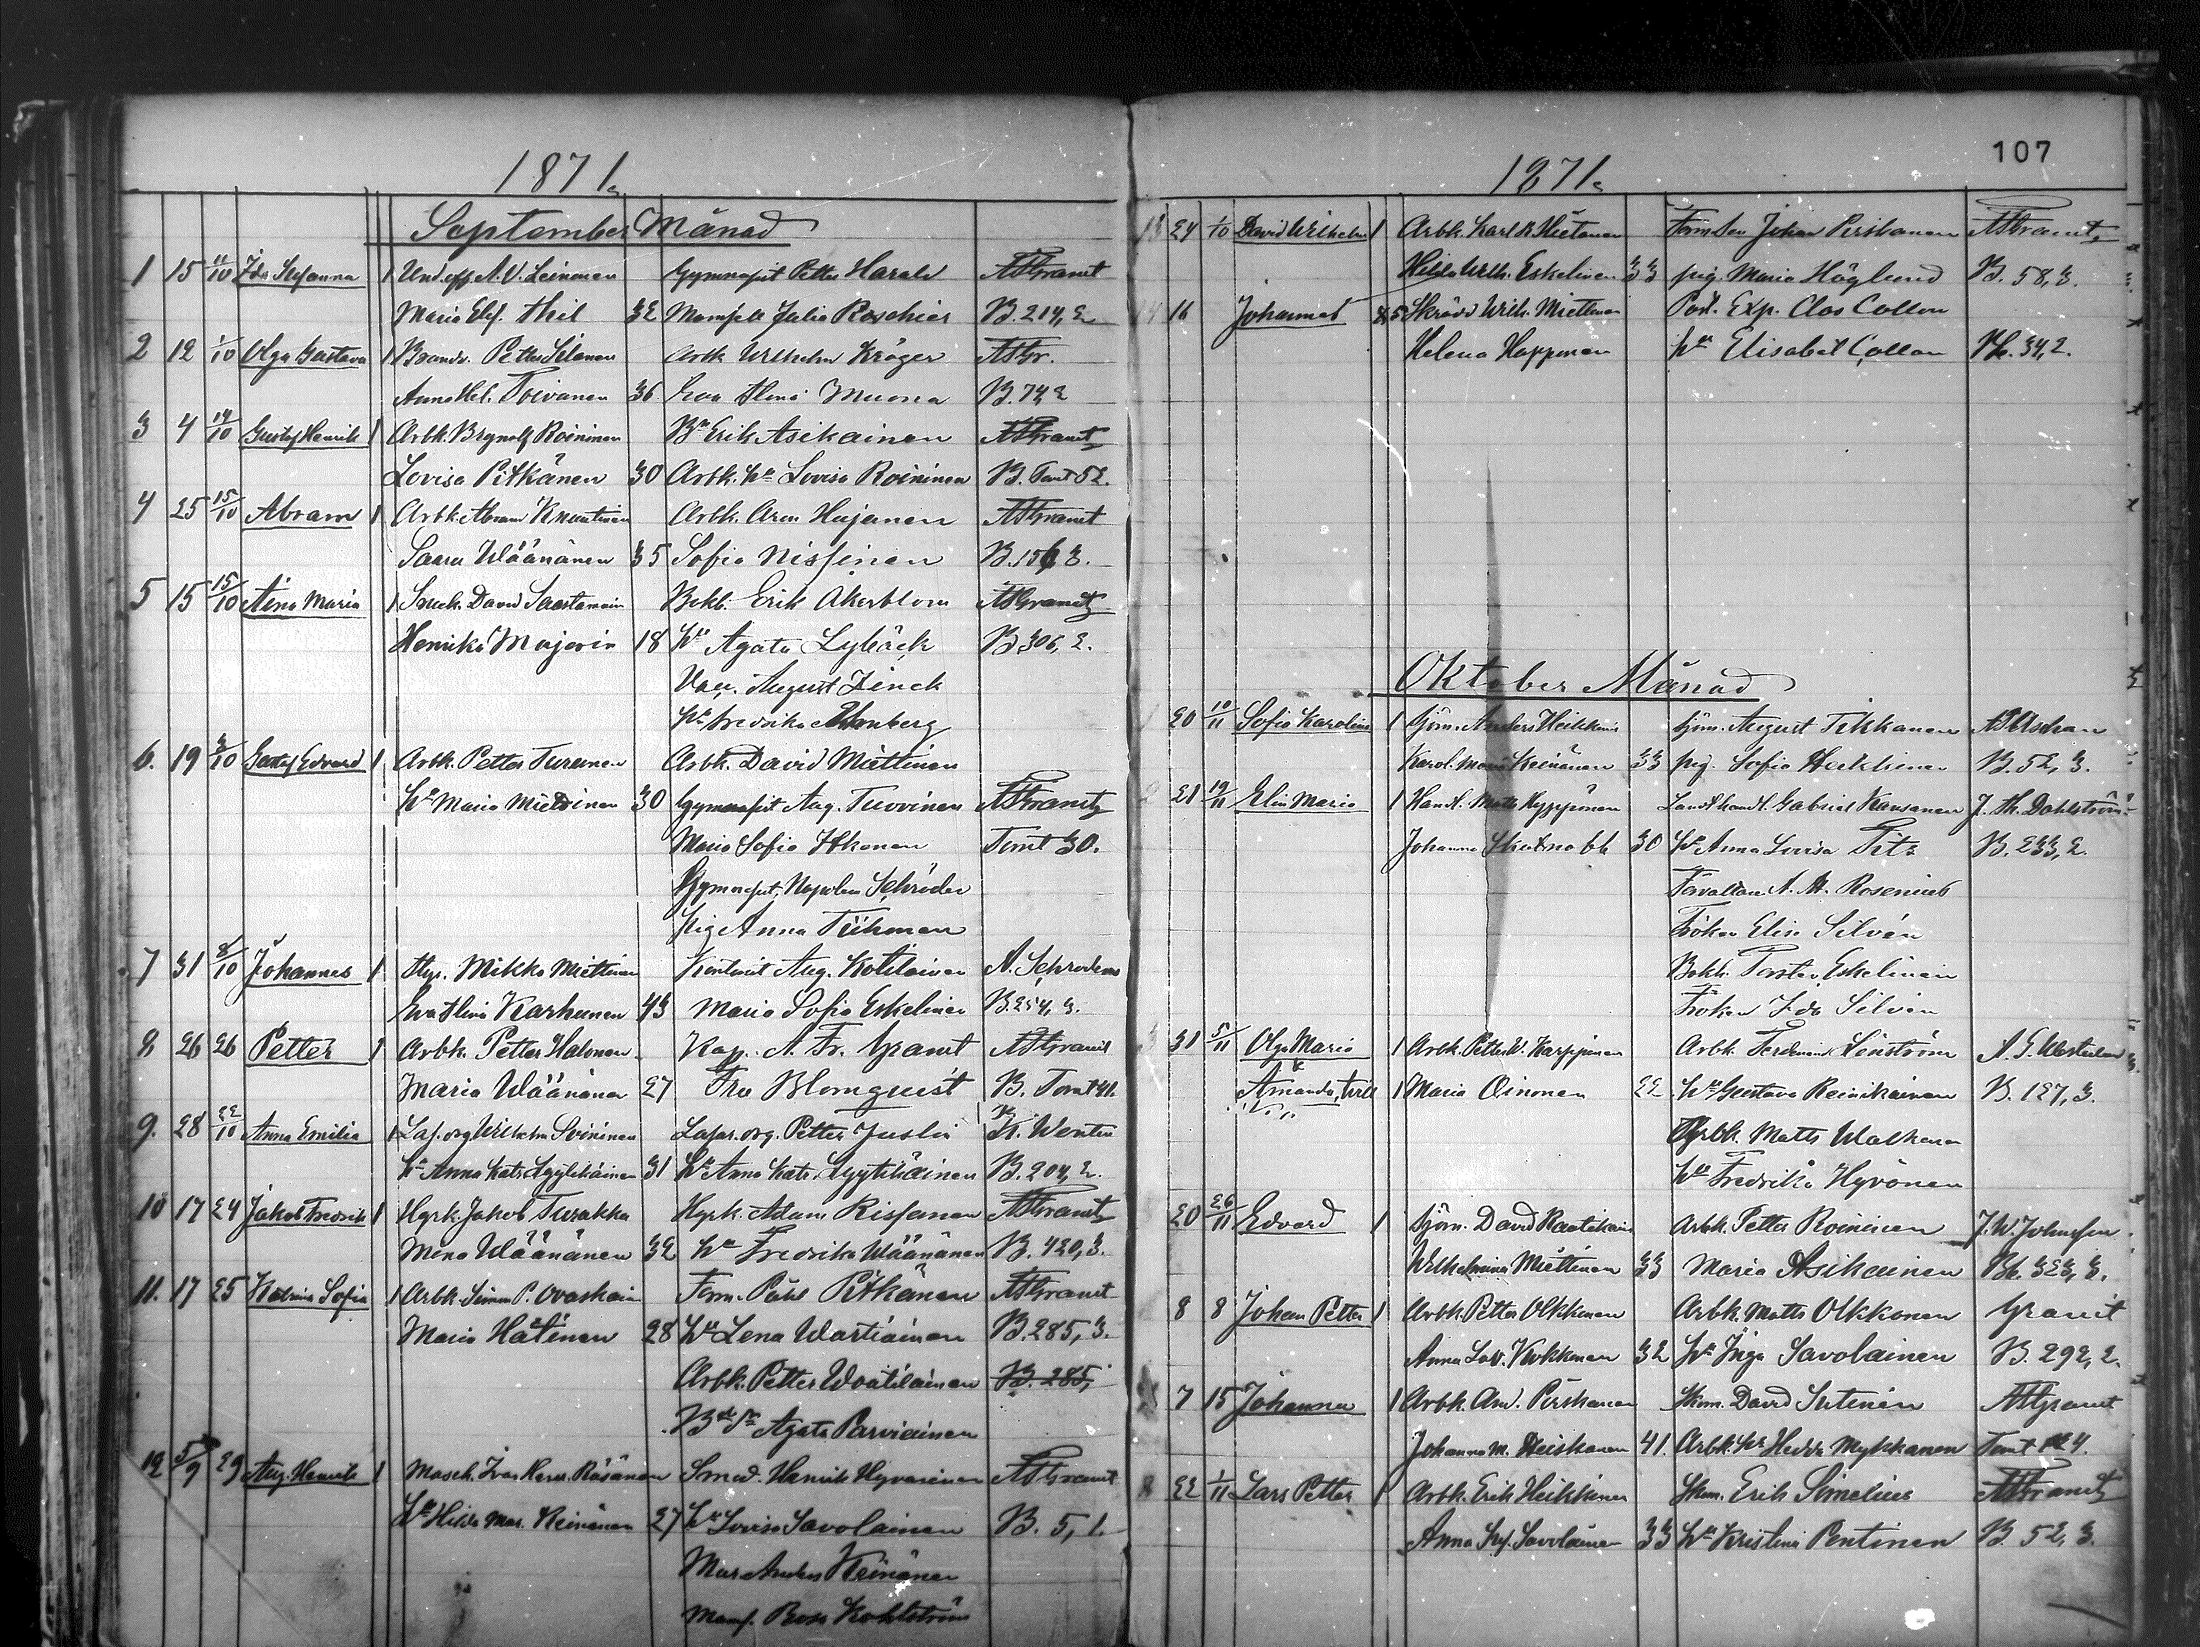 1871.
September Månad
1 15 11/10 Ida Stefanna 1 Und.off. A. V. Leinonen Gymnasist Petter Harald A Granit
Maria Elis. Thil 32 Mamsell Julia Roschier B. 214, 2
2 12 1/10 Olga Gustava 1 Petter Silanen Arbk Wilhelm Kröger AGr.
Anna Hel. Toivanen 36 Eva Stina Muona B. 74, 2
3 4 14/10 Gustaf Henrik 1 Arbk. Brynolf Roininen Bn Erik Asikainen A Granit
Lovisa Pitkänen 30 Arbk. hu Lovisa Roininen B. Tomt 52.
4 25 15/10 Abram 1 Arbk. Abram Knuutinen Arbk. Aron Hujanen A Granit
Saara Wäänänen 35 Sofia Nissinen B. 156, 3.
5 15 15/10 Aina Maria 1 Snick. David Saastamoin Bokb. Erik Åkerblom A Granit
Henrika Majorin 18 Hu Agata Lybäck B 306, 2.
August Zinck
Hu Fredrika
6. 19 3/10 Gustaf Edvard 1 Arbk. Petter Turunen Arbk. David Miettinen
Hu Maria Miettinen 30 Gymnasist Aug. Tuovinen A Granit
Maria Sofia Itkonen Tomt 30.
Gymnasist. Napoleon Schröder
Pig Anna Tiihonen
7 31 8/10 Johannes 1 Hyr. Mikko Miettinen Aug. Kotilainen A. Schroderus
Eva Stina Karhunen 43 Maria Sofia Eskelinen B. 254, 3.
8 26 26 Petter 1 Arbk. Petter Halonen Kap. A. Fr. Granit A Granit
Maria Wäänänen 27 Fru Blomquist B. Tomt 41.
9. 28 22/10 Anna Emilia 1 Laf. org. Wilhelm Soininen Lafar. org. Petter Juslin K. Wentin
Hu Anna Kats. Lyytikäinen 31 Hu Anna Kats. Lyytikäinen B. 204, 2.
10 17 24 Jakob Fredrik 1 Hyrk. Jakob Turakka Hyrk. Adam Rissanen A Granit
Mena Wäänänen 32 Hu Fredrika Wäänänen B. 420, 3.
11. 17 25 Sofia 1 Arbk. Simon P. Ovaskain Form. Påhl Pitkänen A Granit
Maria Hätinen 28 Hu Lena Wartiainen B. 285, 3.
Arbk. Petter Woutilainen B. 285,
Agata Parviainen
12 5/9 29 Aug. Henrik 1 Mask. Ivar Herm. Räsänen Smed. Henrik Hyvärinen A Granit
Hu Hilda Mar. Keinänen 27 Hu Lovisa Savolainen B. 5, 1.
Keinänen
Mams. Rosa Kohlström
107
1871.
13 24 1/10 David Wilhelm 1 Arbk. Karl K Hietanen Johan Pirskanen A Granit
Hilda Wilh. Eskelinen 33 pig. Maria Höglund B. 58, 3.
14 16 Johannes Skräd Wilh. Miettinen Post. Exp. Clas Collan
Helena Happonen Hu Elisabet Collan 34, 2.
Oktober Månad
20 10/11 Sofia Karolina 1 Sjöm. Anders Heikkinen Sjöm. August Tikkanen
Karol. Maria Keinänen 33 pig. Sofia Heikkinen B. 52, 3.
21 19/11 Elin Maria 1 Handl. Matts Hyppönen Landthandl. Gabriel Kausanen J. H. Dahlström
Johanna Skutnabb 30 Hu Anna Lovisa Titz B. 233, 2.
Förvaltaren A. M. Rosenius
Fröken Elise Silvén
Bokh. Torsten Eskelinen
Fröken Ida Silvén
31 5/11 Olga Maria 1 Arbk. Petter W. Karppinen Arbk. Ferdinand Lönström
& Amanda, tvill 1 Maria Oinonen 22 Hu Gustava Reinikainen B. 127, 3.
Arbk. Matts Walkonen
Hu Fredrika Hyvönen
20 26/11 Edvard 1 Sjöm. David Rautiain Arbk. Petter Roininen J. W. Johnsson
Wilhelmina Miettinen 33 Maria Asikainen B. 323, 3.
8 8 Johan Petter 1 Arbk. Petter Olkkonen Arbk. Matts Olkkonen Granit
Anna Lov. Kukkonen 32 Hu Inga Savolainen B. 292, 2.
7 15 Johanna 1 Arbk. And. Pirskanen Skom. David Sutinen A Granit
Johanna M. Heiskanen 41. Arbk. hu Hedda Mykkänen Tomt
22 1/11 Lars Petter 1 Arbk. Erik Heikkinen Skom. Erik Simelius A Granit
Anna Sof. Savolainen 33 Hu Kristina Pentinen B. 52, 3.